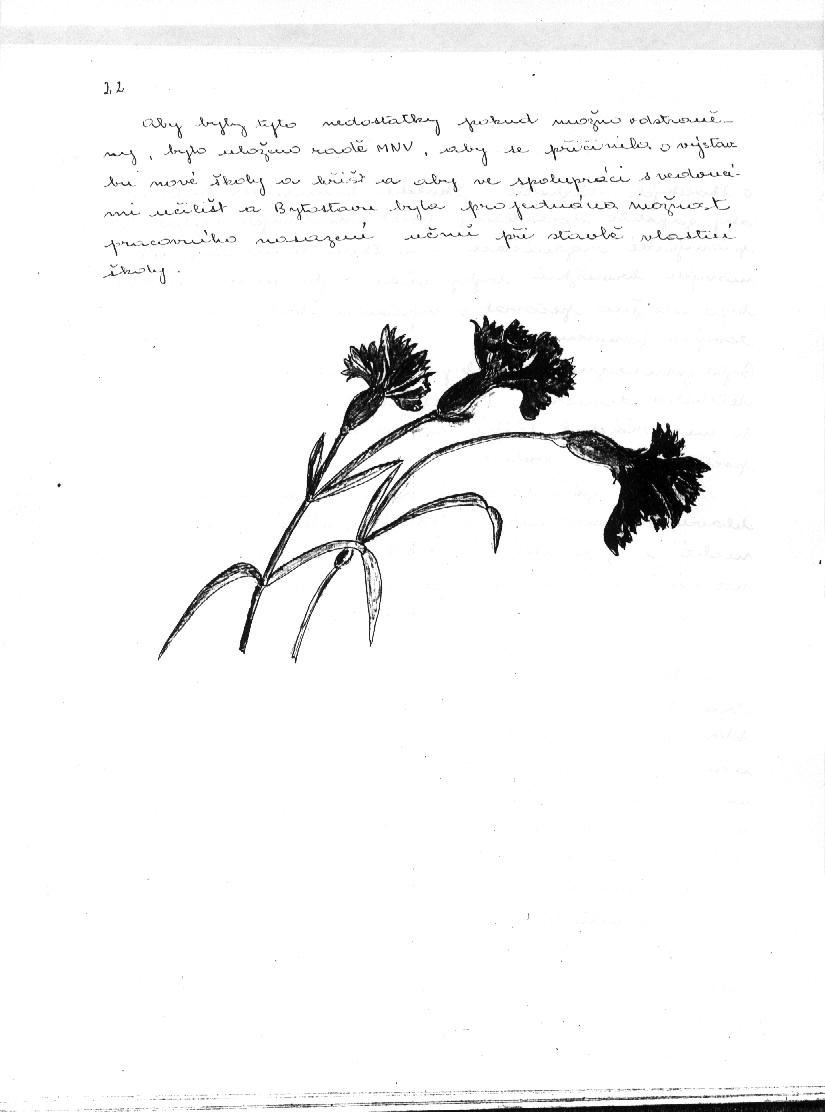 22
Aby byly tyto nedostatky pokud možno odstraně-
ny, bylo uloženo radě MNV, aby se přičinila o výstav
bu nové školy a hřišť a aby ve spolupráci s vedoucí-
mi učilišť a Bytostavu byla projednána možnost
pracovního nasazení učňů při stavbě vlastní
školy.